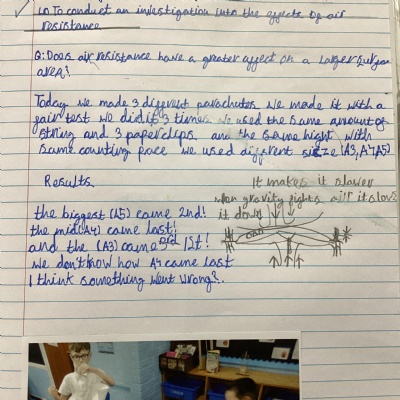 LO To conduct an investigation into the effects of air
resistance
Q: Does air resistance have a greater affect on a larger surface
area?
Today we made 3 different parachutes we made it with a
fair test we did it 3 times we used the same amount of
string and 3 paperclips and the same hight with
same counting pace we used different size (A3, A4, A5)
Results
the biggest (A5) came 2nd!
the mid (A4) came last!
and the (A3) came 1st!
we don't know how A4 came last
I think something went wrong?
It makes it slower
when gravity fights air it slows
it down